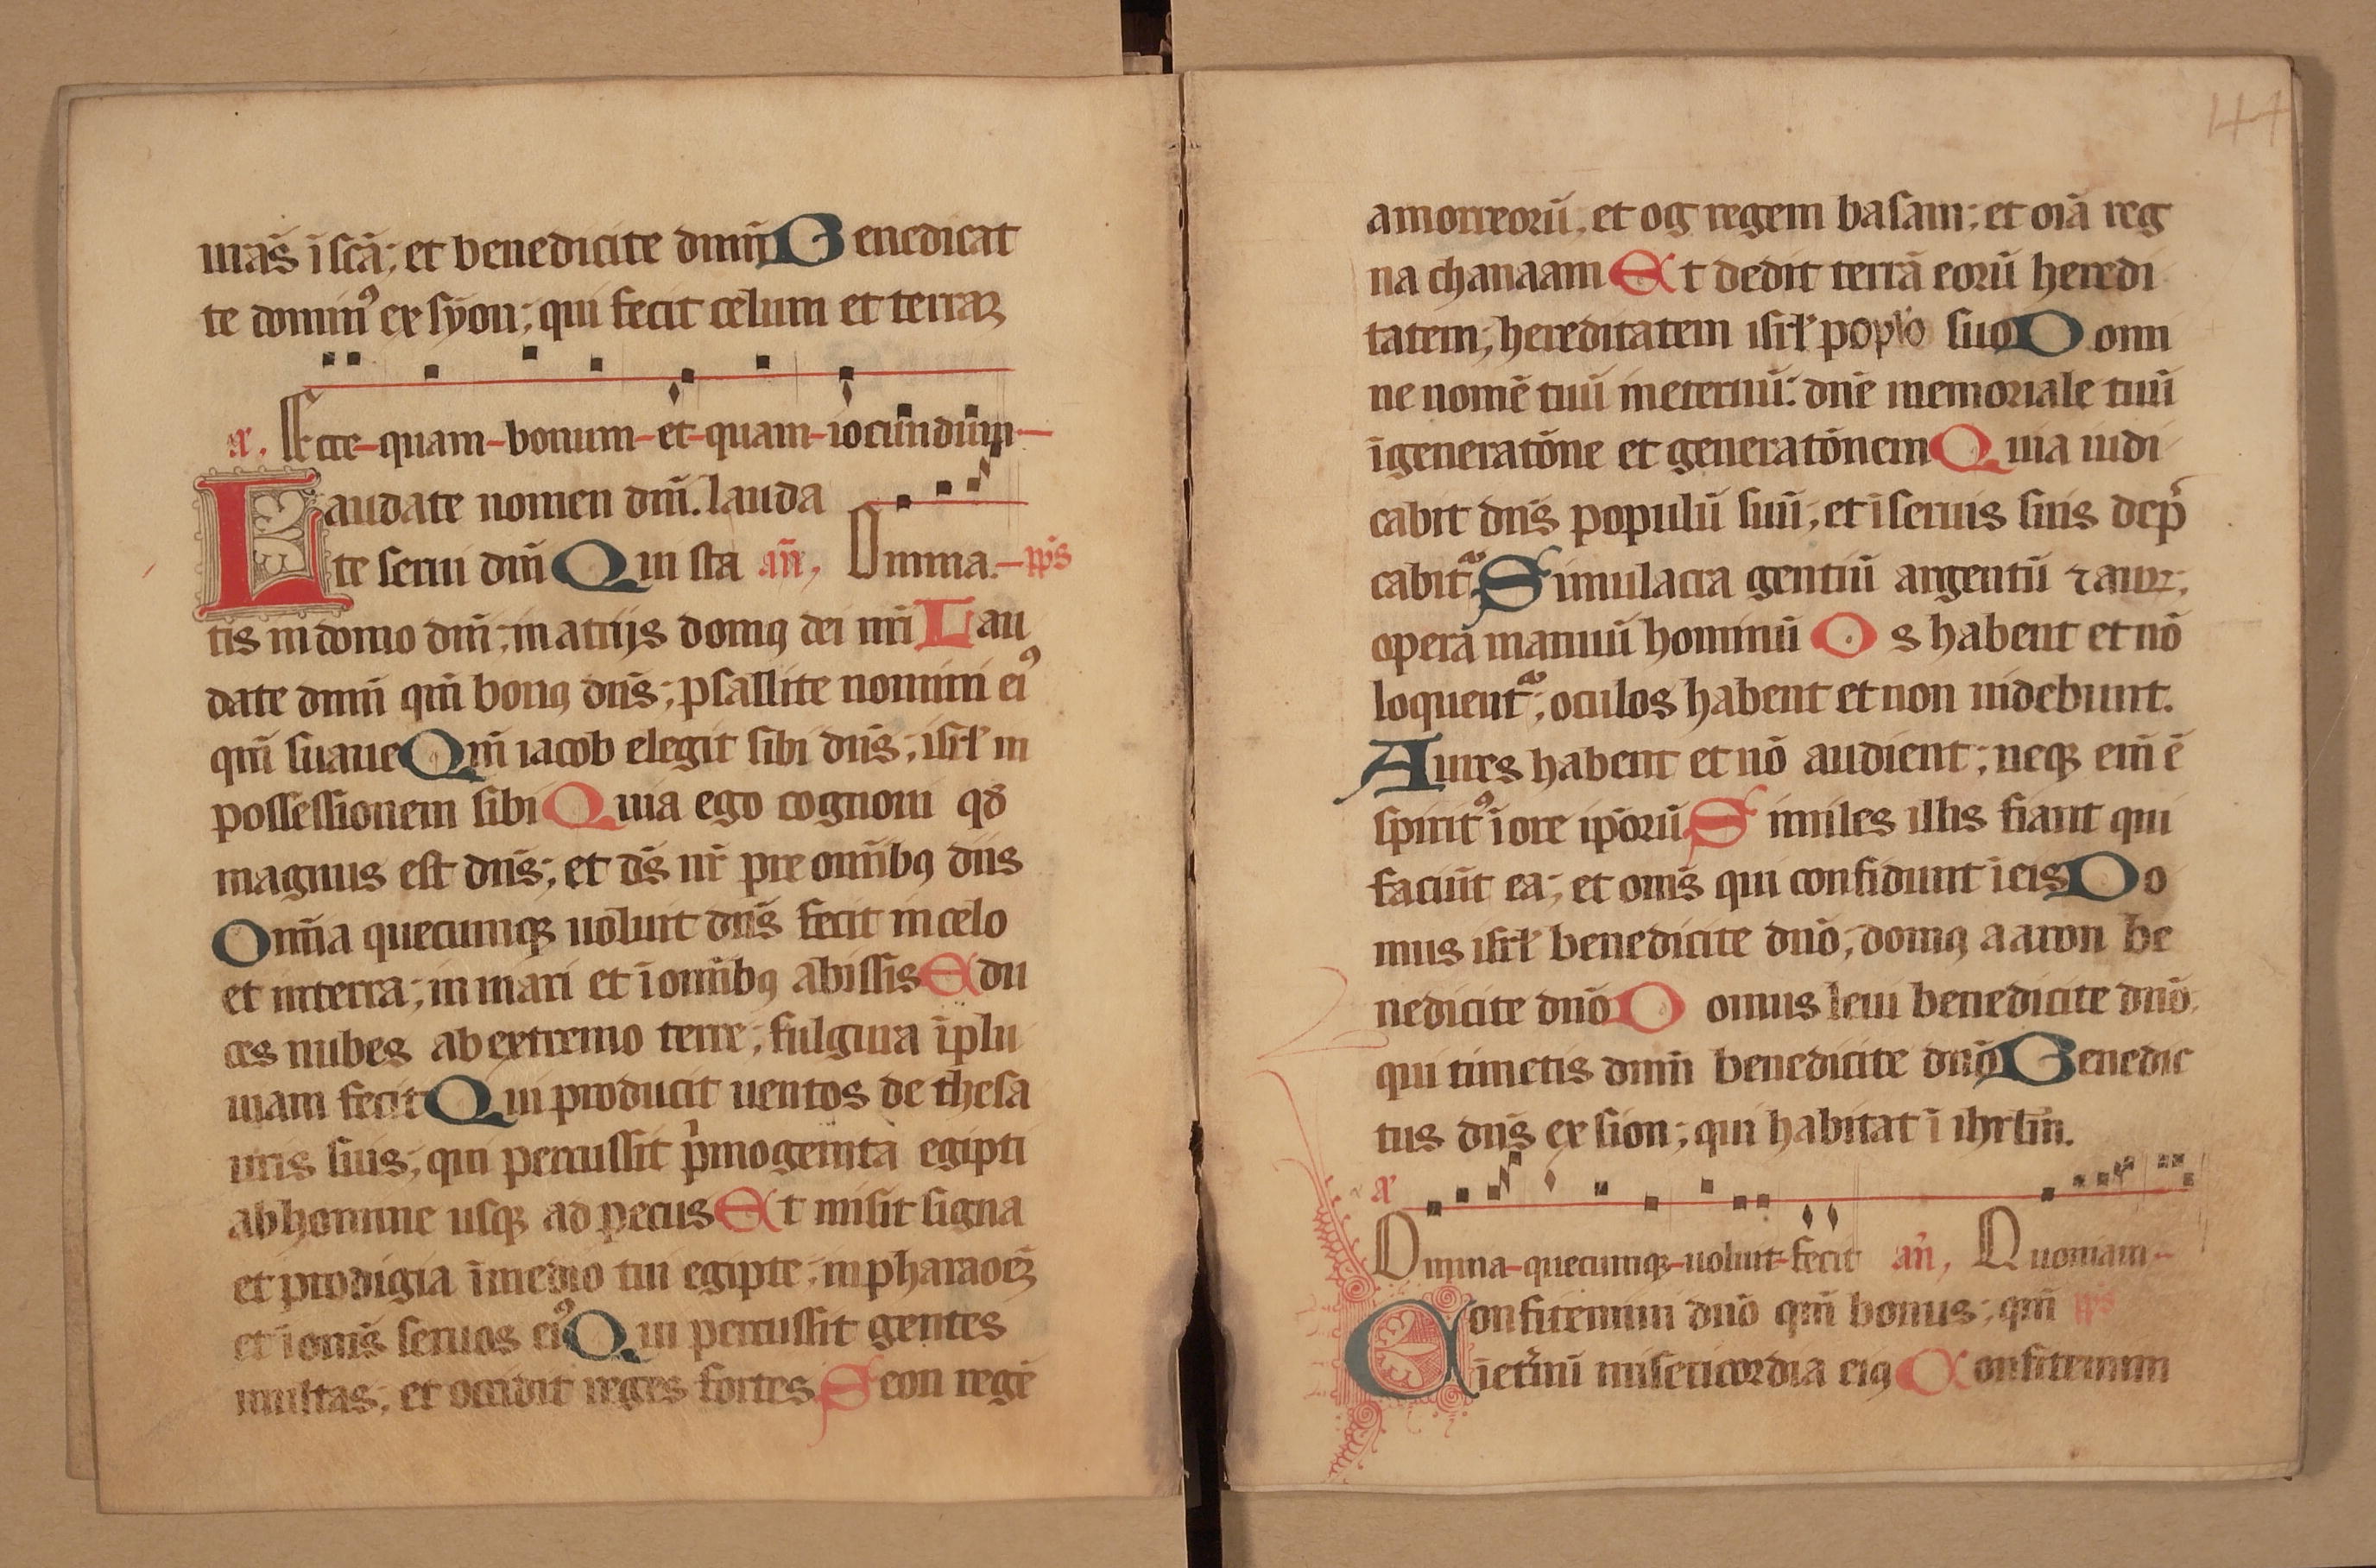 nias̄ ī scā; et benedicite dnm̄ Benedicat
te domin⁹ ex syon; qui fecit celum et terraꝫ
a. Ecce quam bonum et quam iocundum
Laudate nomen dn̄i. lauda
te serui dn̄i Qui sta an̄, Omnia. p̄s
tis in domo dn̄i; in atrijs domꝰ dei nr̄i Lau
date dnm̄ qm̄ bonꝰ dn̄s; psallite nomini ei⁹
qm̄ suaue Qm̄ iacob elegit sibi dn̄s; isrł in
possessionem sibi Quia ego cognoui qđ
magnus est dn̄s; et ds̄ nr̄ pre omībꝰ diis
Omīa quecumqꝫ uoluit dn̄s fecit in celo
et in terra; in mari et ī omībꝰ abissis Edu
ces nubes ab extremo terre; fulgura ī plu
uiam fecit Qui producit uentos de thesa
uris suis; qui percussit pͥmogenita egipti
ab homine usqꝫ ad pecus Et misit signa
et prodigia ī medio tui egipte; in pharaoēꝫ
et ī om̄s seruos ei⁹ Qui percussit gentes
multas; et occidit reges fortes Seon regē
44
amorreorū; et og regem basam; et oīa reg
na chanaam Et dedit terrā eorū heredi
tatem; hereditatem isrł poplo suo Domi
ne nomē tuū ineternū: dnē memoriale tuū
ī generatōne et generatōnem Quia iudi
cabit dn̄s populū suū; et ī seruis suis dep̄
cabitᷓ Simulacra gentiū argentū ⁊ auꝝ;
opera manuū hominū Os habent et nō
loquentᷓ; oculos habent et non uidebunt.
Aures habent et nō audient; neqꝫ em̄ ē
spirit⁹ ī ore ip̄orū Similes illis fiant qui
faciūt ea; et om̄s qui confidunt ī eis Do
mus isrł benedicite dnō; domꝰ aaron be
nedicite dnō Domus leui benedicite dnō.
qui timetis dnm̄ benedicite dnō Benedic
tus dn̄s ex sion; qui habitat ī ihrl̄m.
a
Omnia quecumqꝫ uoluit fecit an̄, Quoniam
Confitemini dnō qm̄ bonus; qm̄ p̄s
ī et̄num misericordia eiꝰ Confitemini